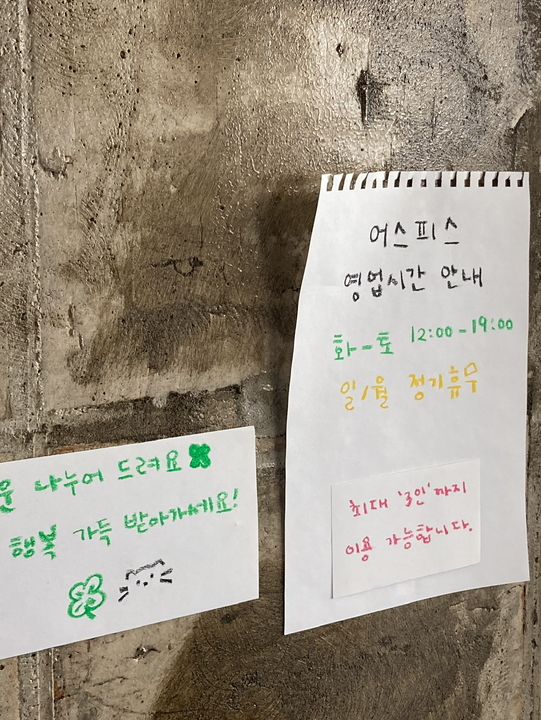 어스피스
영업시간 안내
화-토 12:00-19:00
일/월 정기휴무
최대 '3인'까지
이용 가능합니다.
나누어 드려요
행복 가득 받아가세요!